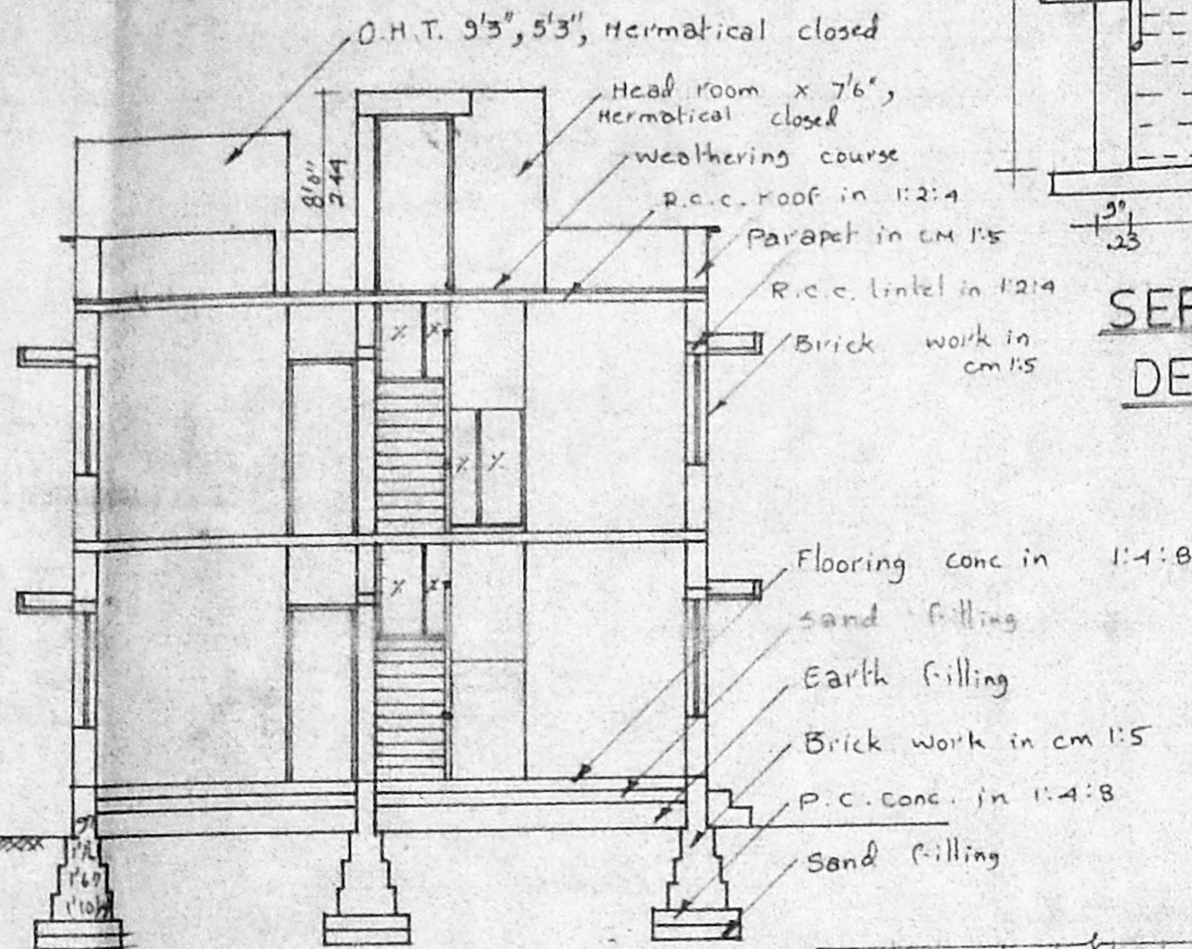 O.H.T. 9'3", 5'3", Hermatical closed
Head room x 7'6",
Hermatical closed
Weathering course
R.C.C. roof in 1:2:4
Parapet in CM 1:5
R.C.C. lintel in 1:2:4
Brick work in
cm 1:5
8'0"
2.44
9"
.23
SEP
DE
Flooring conc in 1:4:8
Sand filling
Earth filling
Brick work in cm 1:5
P.C. conc. in 1:4:8
Sand filling
9"
1'6"
1'10½